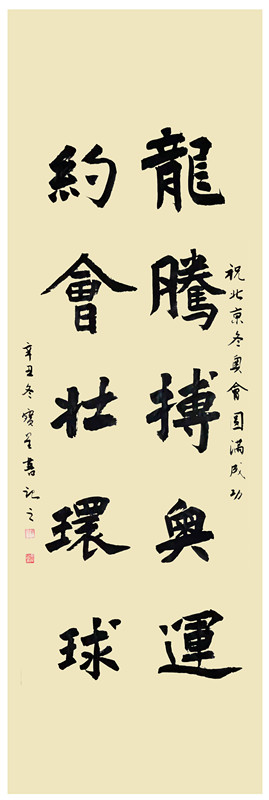 祝北京冬奥會圓滿成功
龍騰搏奥運
約會壯環球
辛丑冬寶呈書記之